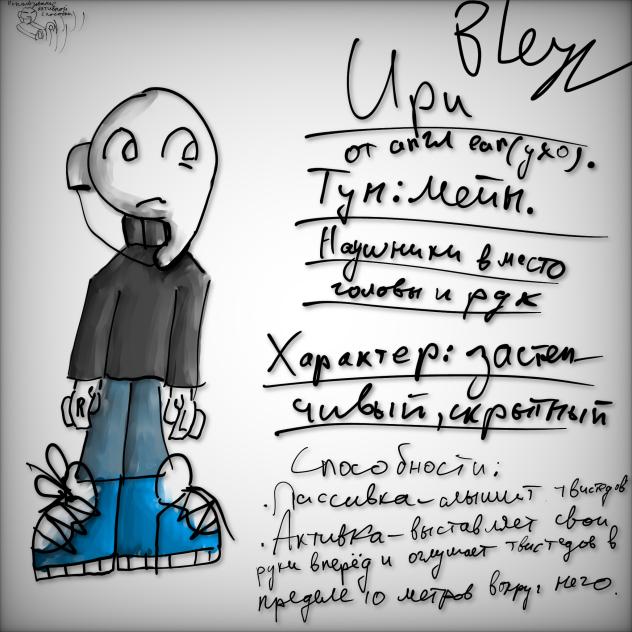 Использование
активной
способки
Bley
Ири
от англ ear(ухо).
Тун:мейн.
Наушники вместо
головы и рук
Характер: застен-
чивый, скрытный
Способности:
. Пассивка-слышит твистедов
. Активка-выставляет свои
руки вперёд и оглушает твистедов в
пределе 10 метров вокруг него.
R
L